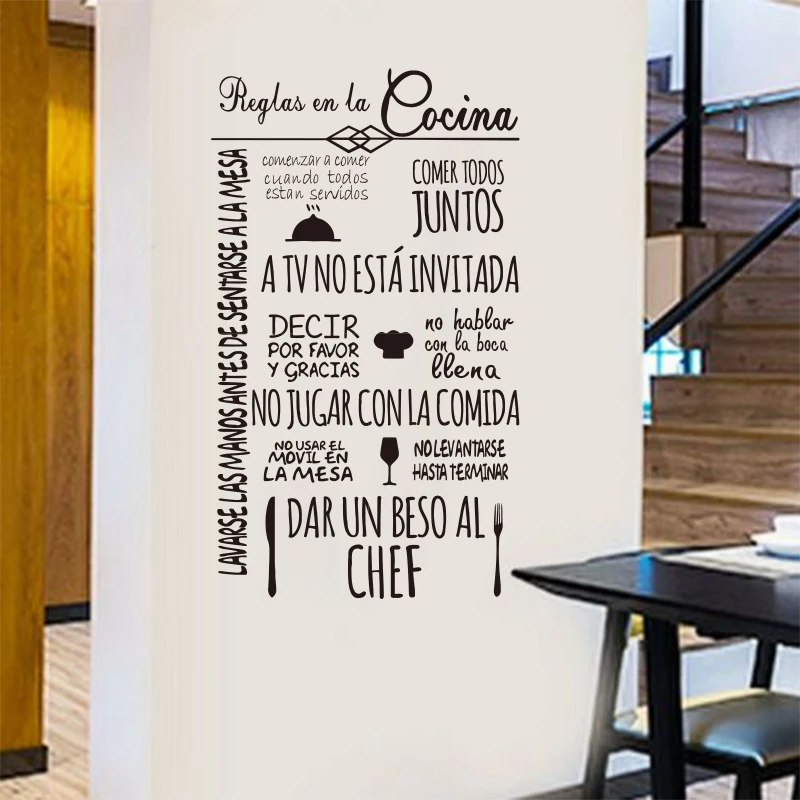 Reglas en la Cocina
LAVARSE LAS MANOS ANTES DE SENTARSE A LA MESA
comenzar a comer
cuando todos
estan servidos
COMER TODOS
JUNTOS
A TV NO ESTÁ INVITADA
DECIR
POR FAVOR
Y GRACIAS
no hablar
con la boca
llena
NO JUGAR CON LA COMIDA
NO USAR EL
MOVIL EN
LA MESA
NO LEVANTARSE
HASTA TERMINAR
DAR UN BESO AL
CHEF